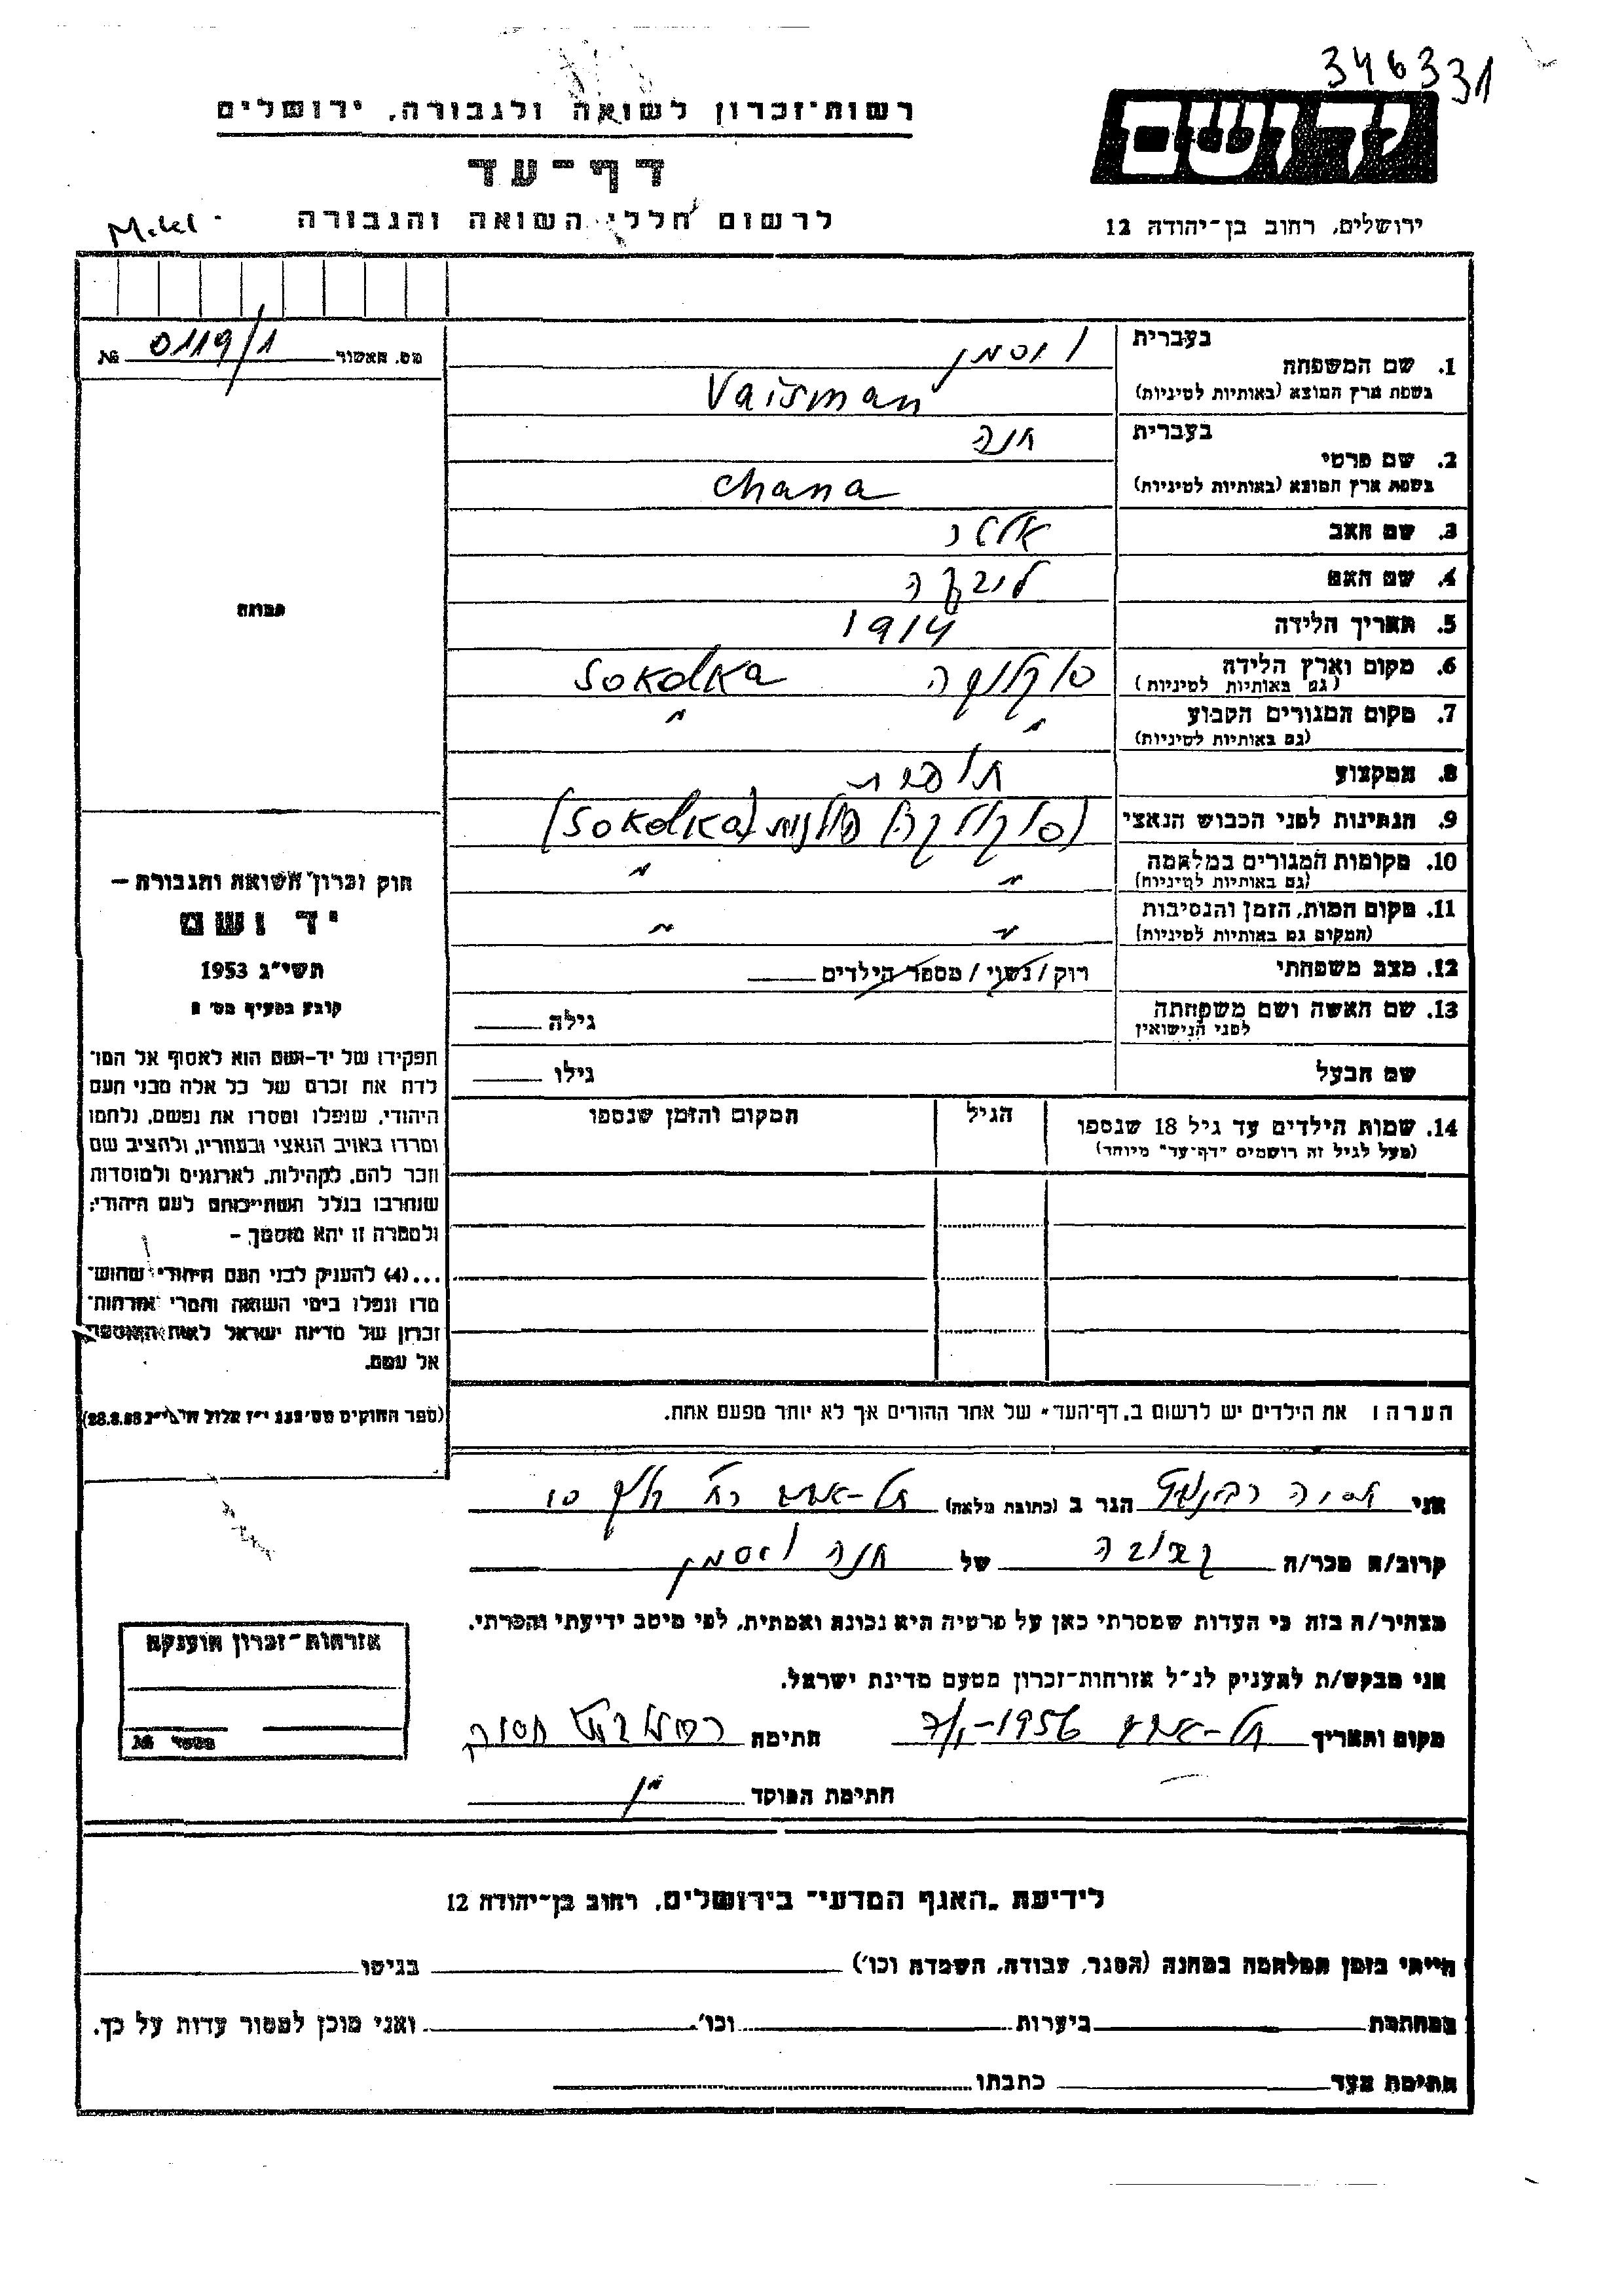 346331
רשות־זכרון לשואה ולגבורה, ירושלים
ידושם
דף־עד
לרשום חללי השואה והגבורה
ירושלים, רחוב בן־יהודה 12
מס. האשור 0119/1 №
תמונה
בעברית
1. שם המשפחה
בשפת ארץ המוצא (באותיות לטיניות)
ויסמן
Vaisman
בעברית
2. שם פרטי
בשפת ארץ המוצא (באותיות לטיניות)
חנה
chana
3. שם האב
4. שם האם
5. תאריך הלידה 1914
6. מקום וארץ הלידה
(גם באותיות לטיניות)
סוקולקה Sokolka
7. מקום המגורים הקבוע
(גם באותיות לטיניות)
" "
8. המקצוע תופרת
9. הנתינות לפני הכבוש הנאצי
(סוקולקה) פולנית (Sokolka)
10. מקומות המגורים במלחמה
(גם באותיות לטיניות)
" "
11. מקום המות, הזמן והנסיבות
(המקום גם באותיות לטיניות)
" "
12. מצב משפחתי
רוק/נשוי/מספר הילדים
13. שם האשה ושם משפחתה
לפני הנישואין
גילה
שם הבעל גילו
14. שמות הילדים עד גיל 18 שנספו
(מעל לגיל זה רושמים "דף־עד" מיוחד)
הגיל
המקום והזמן שנספו
חוק זכרון השואה והגבורה —
יד ושם
תשי"ג 1953
קובע בסעיף מס' 2
תפקידו של יד-ושם הוא לאסוף אל המו־
לדת את זכרם של כל אלה מבני העם
היהודי, שנפלו ומסרו את נפשם, נלחמו
ומרדו באויב הנאצי ובעוזריו, ולהציב שם
וזכר להם, לקהילות, לארגונים ולמוסדות
שנחרבו בגלל השתייכותם לעם היהודי;
ולמטרה זו יהא מוסמך —
...(4) להעניק לבני העם היהודי שהוש־
מדו ונפלו בימי השואה והמרי אזרחות־
זכרון של מדינת ישראל לאות היאספם
אל עמם.
הערה: את הילדים יש לרשום ב"דף־העד" של אחד ההורים אך לא יותר מפעם אחת.
אני הגר ב (כתובת מלאה) תל-אביב
קרוב/ה מכר/ה קרובה של חנה ויסמן
מצהיר/ה בזה כי העדות שמסרתי כאן על פרטיה היא נכונה ואמתית, לפי מיטב ידיעתי והכרתי.
אני מבקש/ת להעניק לנ"ל אזרחות־זכרון מטעם מדינת ישראל.
מקום ותאריך תל-אביב 1956 חתימה
חתימת הפוקד
אזרחות־זכרון הוענקה
מספר №
לידיעת "האגף המדעי" בירושלים, רחוב בן־יהודה 12
הייתי בזמן המלחמה במחנה (הסגר, עבודה, השמדה וכו') בגיטו
במחתרת ביערות וכו'. ואני מוכן למסור עדות על כך.
חתימת העד כתבתו